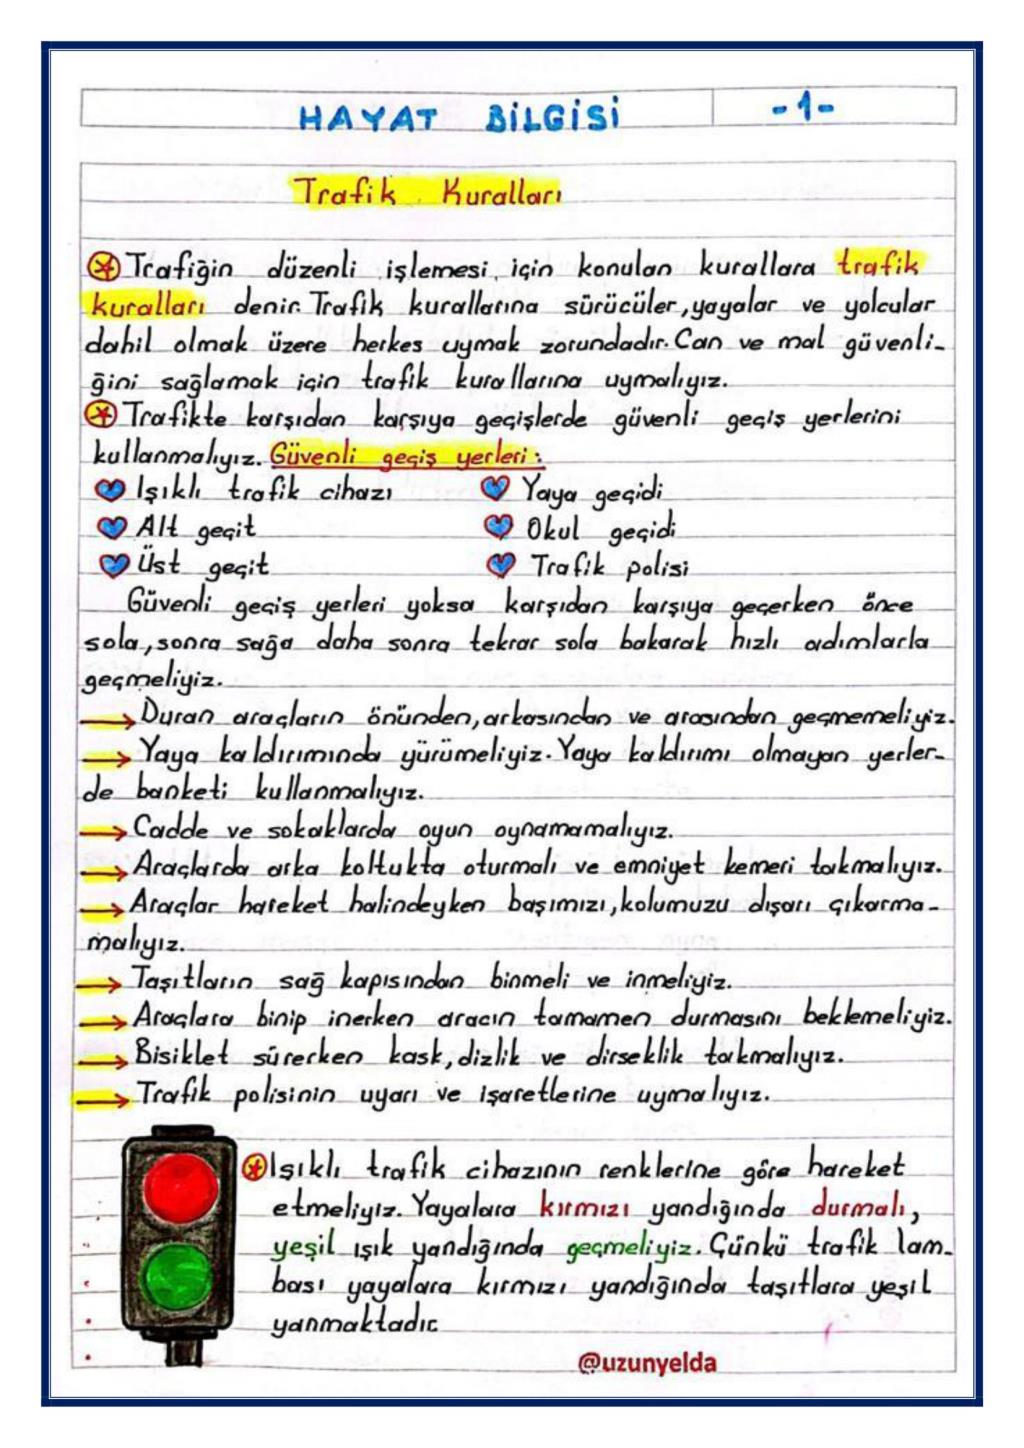 HAYAT BİLGİSİ -1-
Trafik Kuralları
Trafiğin düzenli işlemesi için konulan kurallara trafik
kuralları denir. Trafik kurallarına sürücüler, yayalar ve yolcular
dahil olmak üzere herkes uymak zorundadır. Can ve mal güvenli-
ğini sağlamak için trafik kurallarına uymalıyız.
Trafikte karşıdan karşıya geçişlerde güvenli geçiş yerlerini
kullanmalıyız. Güvenli geçiş yerleri:
Işıklı trafik cihazı Yaya geçidi
Alt geçit Okul geçidi
Üst geçit Trafik polisi
Güvenli geçiş yerleri yoksa karşıdan karşıya geçerken önce
sola, sonra sağa daha sonra tekrar sola bakarak hızlı adımlarla
geçmeliyiz.
Duran araçların önünden, arkasından ve arasından geçmemeliyiz.
Yaya kaldırımında yürümeliyiz. Yaya kaldırımı olmayan yerler-
de banketi kullanmalıyız.
Cadde ve sokaklarda oyun oynamamalıyız.
Araçlarda arka koltukta oturmalı ve emniyet kemeri takmalıyız.
Araçlar hareket halindeyken başımızı, kolumuzu dışarı çıkarma-
malıyız.
Taşıtların sağ kapısından binmeli ve inmeliyiz.
Araçlara binip inerken aracın tamamen durmasını beklemeliyiz.
Bisiklet sürerken kask, dizlik ve dirseklik takmalıyız.
Trafik polisinin uyarı ve işaretlerine uymalıyız.
Işıklı trafik cihazının renklerine göre hareket
etmeliyiz. Yayalara kırmızı yandığında durmalı,
yeşil ışık yandığında geçmeliyiz. Çünkü trafik lam-
bası yayalara kırmızı yandığında taşıtlara yeşil
yanmaktadır
@uzunyelda